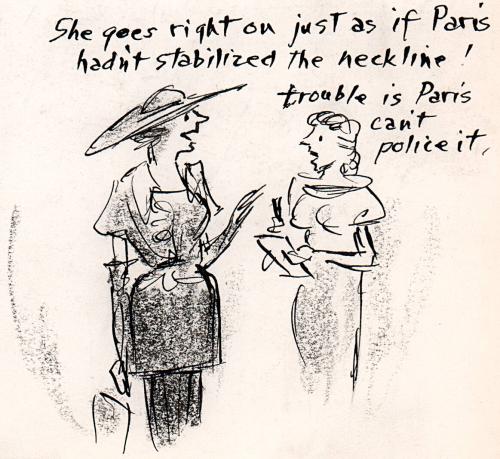 She goes right on just as if Paris
hadn't stabilized the neckline!
trouble is Paris
can't
police it.